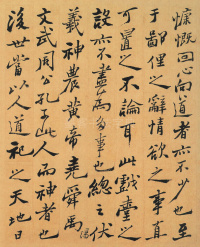 慷慨回心向道者亦不少也至
于鄙俚之辭情欲之事直
可置之不論耳此戲臺之
設亦不盡為多事也總之伏
羲神農黃帝堯舜禹湯
文武周公孔子此人而神者也
後世當以人道祀之天地日